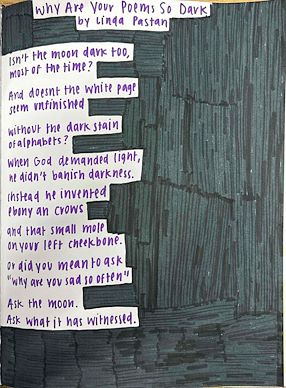 Why Are Your Poems So Dark
by Linda Pastan
Isn't the moon dark too,
most of the time?
And doesnt the white page
seem unfinished
without the dark stain
of alphabets?
When God demanded light,
he didn't banish darkness.
Instead he invented
ebony an crows
and that small mole
on your left cheekbone.
Or did you mean to ask
"why are you sad so often"
Ask the moon.
Ask what it has witnessed.